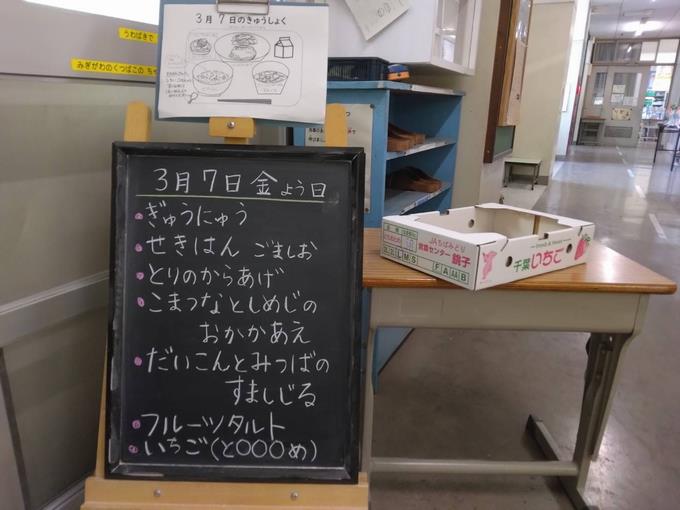 3月7日のきゅうしょく
うわばきで
みぎがわのくつばこの
3月7日 金よう日
ぎゅうにゅう
せきはん ごましお
とりのからあげ
こまつなとしめじの
おかかあえ
だいこんとみつばの
すましじる
フルーツタルト
いちご(と○○○め)
JAちばみどり
営農センター銚子
千葉いちご